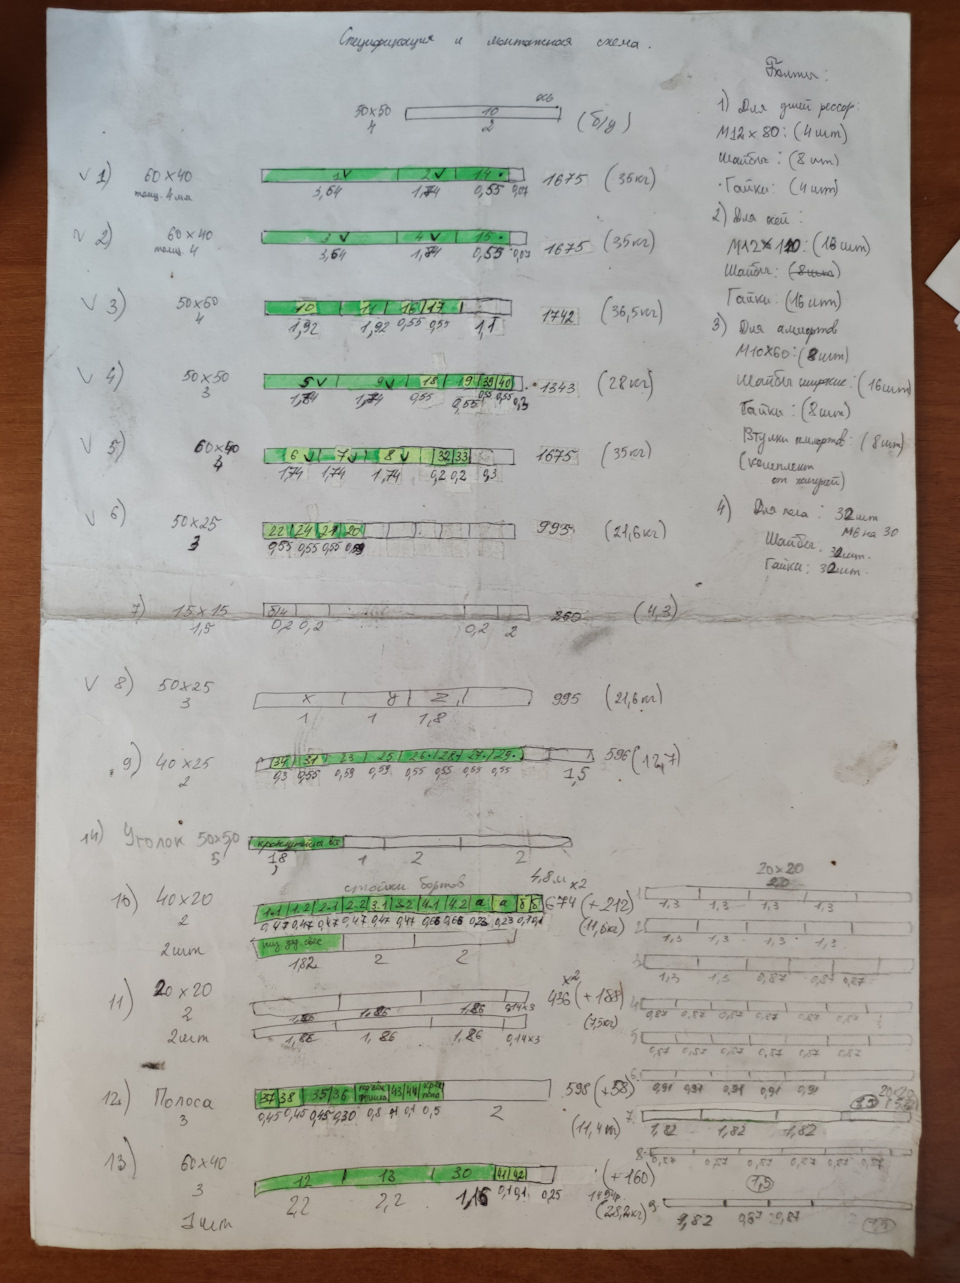 Спецификация и монтажная схема.
50×50
4
ось
10
2
(б/у)
V 1) 60×40
толщ. 4 мм
1 V 2 V 14
3,64 1,74 0,55 0,07
1675 (35кг)
V 2) 60×40
толщ. 4
3 V 4 V 15
3,64 1,74 0,55 0,07
1675 (35кг)
V 3) 50×60
4
10 11 16 17
1,92 1,92 0,55 0,55 1,1
1742 (36,5кг)
V 4) 50×50
3
5 V 9 V 18 19 39 40
1,74 1,74 0,55 0,55 0,55 0,55 0,3
1343 (28кг)
V 5) 60×40
4
6 V 7 V 8 V 32 33
1,74 1,74 1,74 0,2 0,2 0,3
1675 (35кг)
V 6) 50×25
3
22 24 21 20
0,55 0,55 0,55 0,59
995 (21,6кг)
7) 15×15
1,5
0,2 0,2 0,2 2
260 (4,3)
V 8) 50×25
3
x y z
1 1 1,8
995 (21,6кг)
9) 40×25
2
34 31 23 25 26 28 27 29
0,3 0,55 0,59 0,59 0,55 0,55 0,55 0,55 1,5
596 (12,7)
14) Уголок 50×50
5
1,8 1 2 2
стойки бортов
4,8м ×2
10) 40×20
2
2шт
1-1 1-2 2-1 2-2 3-1 3-2 4-1 4-2 а а б б
0,47 0,47 0,47 0,47 0,47 0,47 0,66 0,66 0,23 0,23 0,1 0,1
674 (+212)
(11,6кг)
1,82 2 2
11) 20×20
2
2шт
1,86 1,86 1,86 0,14×3
1,86 1,86 1,86 0,14×3
×2
436 (+188)
(7,5кг)
12) Полоса
3
37 38 35 36 43 44
0,45 0,45 0,45 0,30 0,8 0,1 0,1 0,5 2
598 (+58)
(11,4кг)
13) 60×40
3
1шт
12 13 30 41 42
2,2 2,2 1,16 0,1 0,1 0,25
(+160)
1494р
(28,2кг)
Болты:
1) Для ушей рессор:
М12×80: (4шт)
Шайбы: (8шт)
Гайки: (4шт)
2) Для осей:
М12×110: (16шт)
Шайбы: (8шт)
Гайки: (16шт)
3) Для амортов
М10×60: (8шт)
Шайбы широкие: (16шт)
Гайки: (8шт)
Втулки амортов: (8шт)
(комплект
4) Для пола: 32шт
М6 на 30
Шайбы: 32шт.
Гайки: 32шт.
20×20
1 1,3 1,3 1,3 1,3
2 1,3 1,3 1,3 1,3
3 1,3 1,3 0,87 0,87 0,87
4 0,87 0,87 0,87 0,87 0,87 0,87
5 0,87 0,87 0,87 0,87 0,87 0,87
6 0,91 0,91 0,91 0,91 0,91
7 1,82 1,82 1,82
8 0,87 0,87 0,87 0,87 0,87 0,87
1,5
9 1,82 0,87 0,87